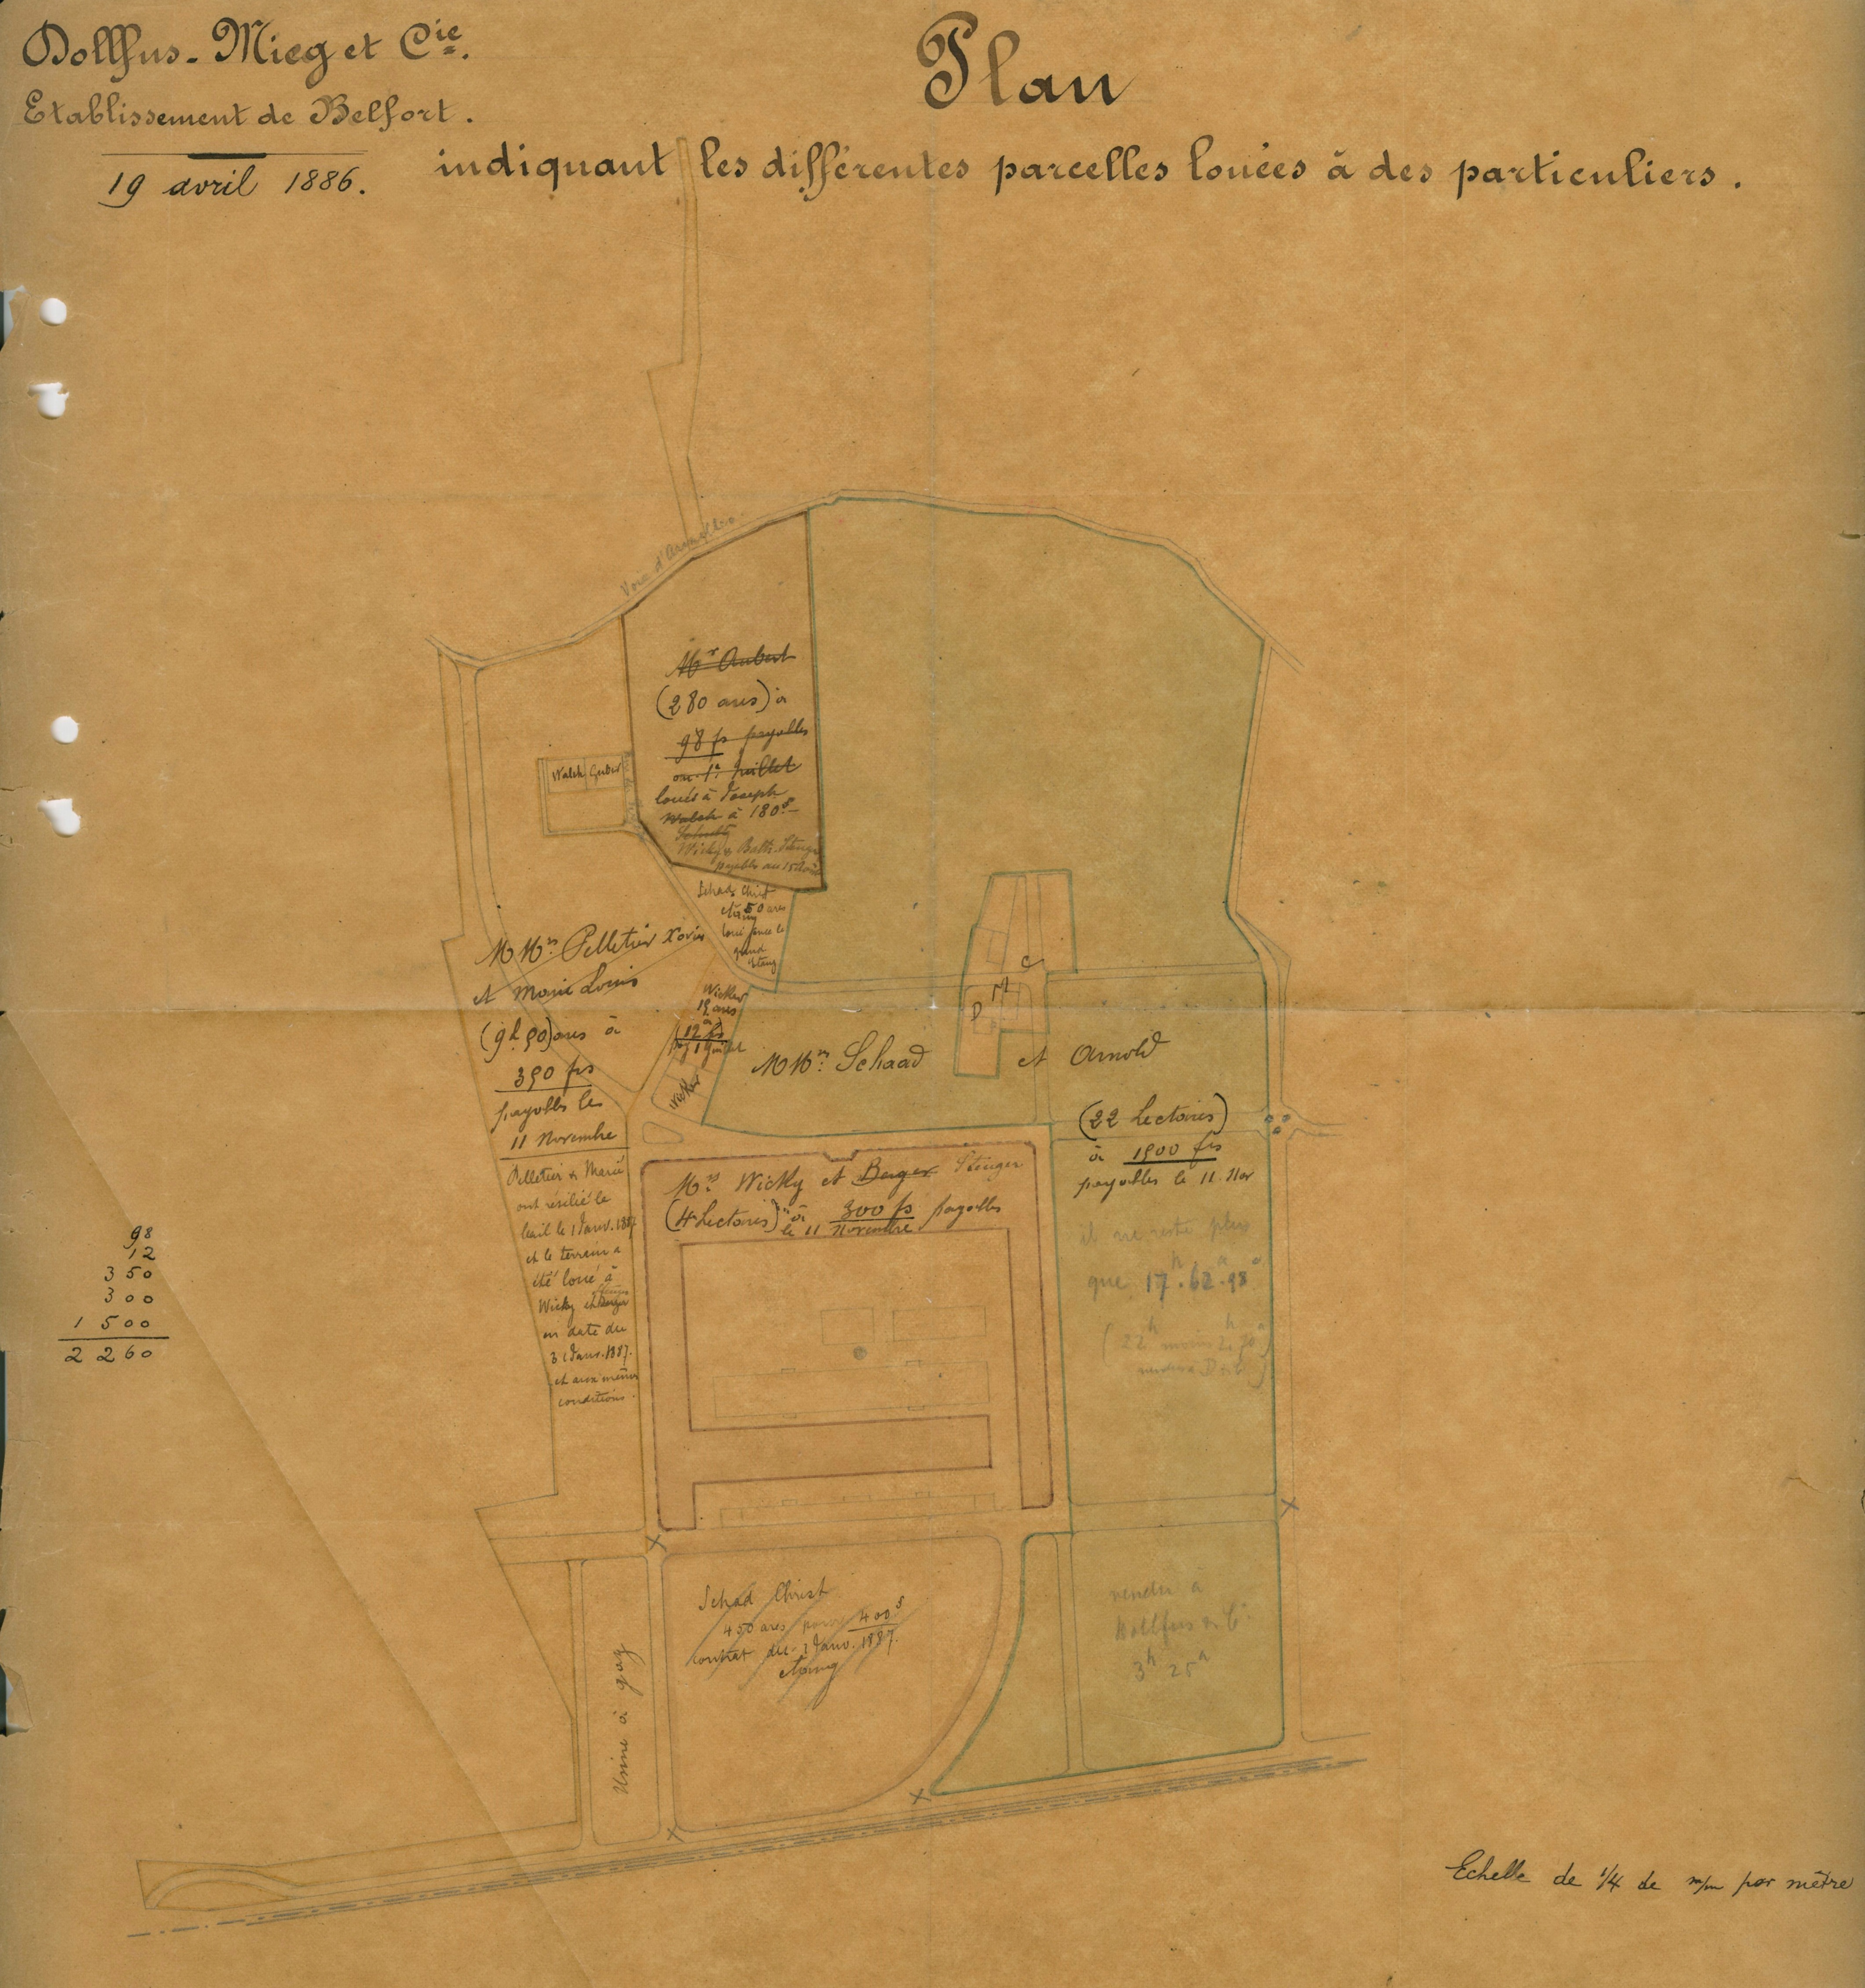 Dollfus-Mieg et Cie.
Etablissement de Belfort.
19 avril 1886.
Plan
indiquant les différentes parcelles louées à des particuliers.
Voie d'
Mr Aubert
(280 ares) à
98 fs payables
au 1er Juillet
loués à Joseph
Walch à 180 f
Schultz
Wicky & Balth. Stenger
payables au 15
Walch
Schad Christ
50 ares
loué pour le
grand
étang
MMrs Pelletier Xavier
et Marie Louis
(9h 50) ares à
350 frs
payables le
11 Novembre
Pelletier & Marie
ont résilié le
bail le 1 Janv. 1887
et le terrain a
été loué à
Wicky et Berger
Stenger
en date du
3 Janv. 1887.
et aux mêmes
conditions.
Wicker
19 ares
à
12 fs
pay 1 Juillet
Wicker
MMrs Schaad et Arnold
C
M
D
(22 hectares)
à 1500 frs
payables le 11 Nov
il ne reste plus
que 17h. 62a. 98
(22h moins
Mrs Wicky et Berger Stenger
(4 hectares) à 300 fs payables
le 11 Novembre
98
12
350
300
1500
2260
Schad Christ
450 ares pour 400 f
contrat du 3 Janv. 1887.
étang
Usine à gaz
vendu à
Dollfus & Ce
3h 25a
Echelle de 1/4 de m/m par mètre